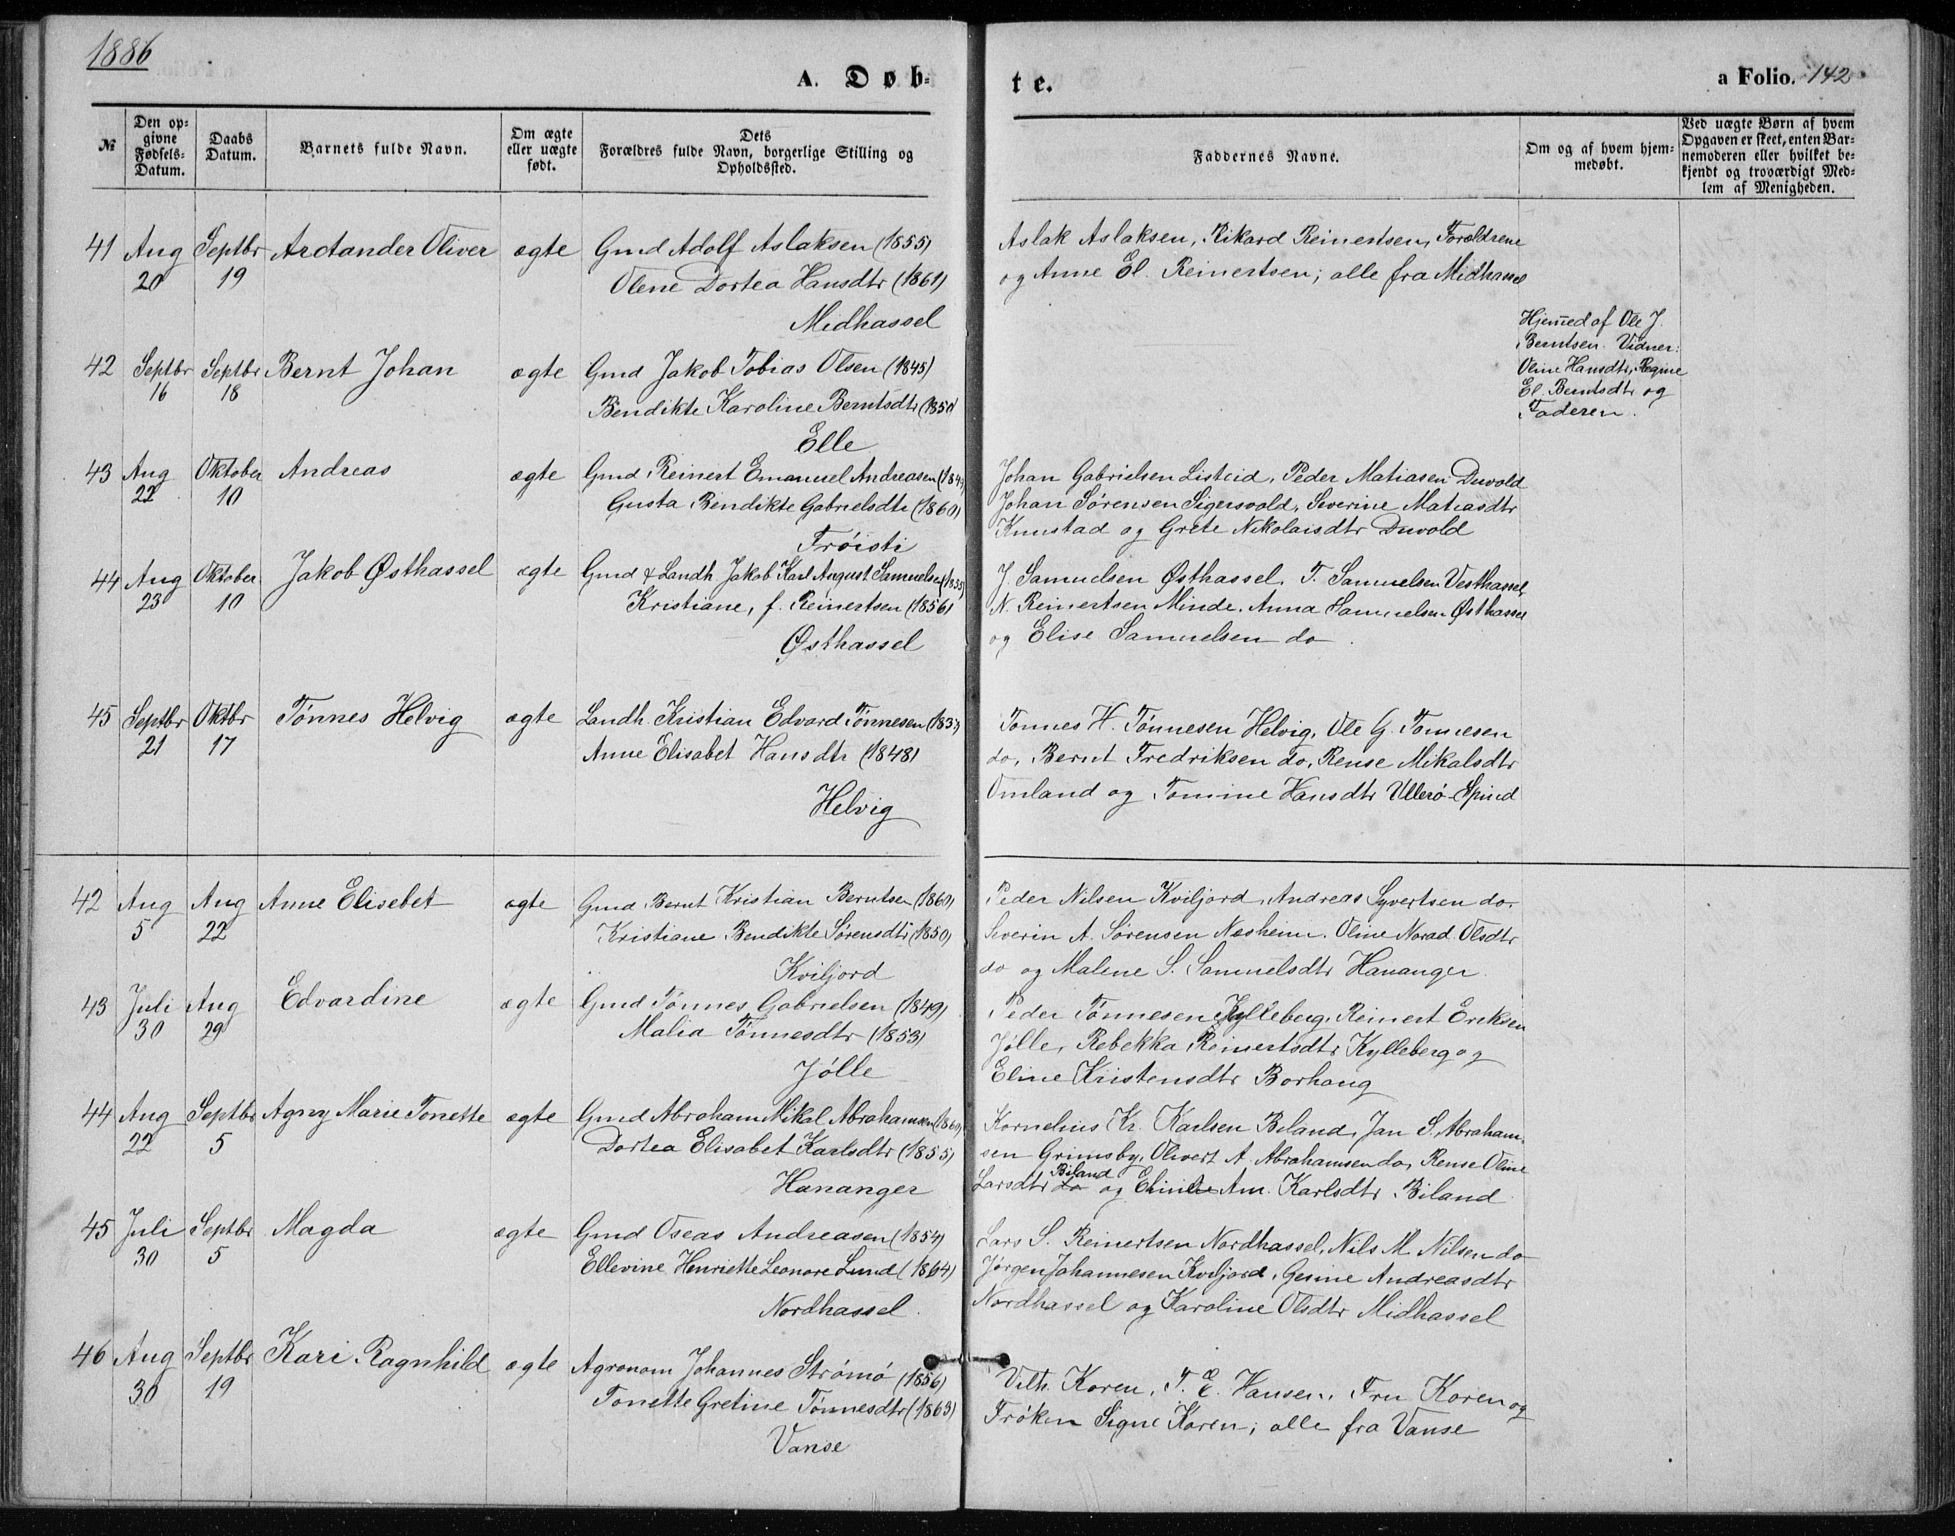 1886
A. Døb-
te.
a Folio. 142
№
Den op-
givne
Fødsels-
Datum.
Daabs
Datum.
Barnets fulde Navn.
Om ægte
eller uægte
født.
Dets
Forældres fulde Navn, borgerlige Stilling og
Opholdssted.
Faddernes Navne.
Om og af hvem hjem-
medøbt.
Ved uægte Børn af hvem
Opgaven er skeet, enten Bar-
nemoderen eller hvilket be-
kjendt og troværdigt Med-
lem af Menigheden.
41 Aug 20 Septbr 19 Arctander Oliver ægte Gmd Adolf Aslaksen (1855)
Olene Dortea Hansdtr (1861)
Midhassel
Aslak Aslaksen, Rikard Reinertsen, Forældrene
og Anne El. Reinertsen; alle fra Midhassel
42 Septbr 16 Septbr 18 Bernt Johan ægte Gmd Jakob Tobias Olsen (1845)
Bendikte Karoline Berntsdtr (1850)
Elle
Hjemmed af Ole J.
Berntsen. Vidner:
Oline Hansdtr, Regine
El. Berntsdtr og
Faderen.
43 Aug 22 Oktober 10 Andreas ægte Gmd Reinert Emanuel Andreasen
Gusta Bendikte Gabrielsdtr (1860)
Frøisti
Johan Gabrielsen Listeid, Peder Matiasen Duvold
Johan Sørensen Sigersvold, Severine Matiasdtr
Knustad og Grete Nikolaisdtr Duvold
44 Aug 23 Oktober 10 Jakob Østhassel ægte Gmd & Landh. Jakob Karl August Samuelsen (1835)
Kristiane, f. Reinertsen (1856)
Østhassel
J. Samuelsen Østhassel, T. Samuelsen Vesthassel,
N. Reinertsen Minde, Anna Samuelsen Østhassel
og Elise Samuelsen do.
45 Septbr 21 Oktbr 17 Tønnes Helvig ægte Landh. Kristian Edvard Tønnesen
Anne Elisabet Hansdtr (1848)
Helvig
Tønnes H. Tønnesen Helvig, Ole G. Tønnesen
do, Bernt Fredriksen do, Rense Mikalsdtr
Omland og Tomine Hansdtr Ullerø Spind
42 Aug 5 Aug 22 Anne Elisebet ægte Gmd Bernt Kristian Berntsen (1860)
Kristiane Bendikte Sørensdtr (1850)
Kviljord
Peder Nilsen Kviljord, Andreas Syvertsen do.
Severin A. Sørensen Nesheim. Oline Norad. Olsdtr
do og Malene S. Samuelsdtr Hananger.
43 Juli 30 Aug 29 Edvardine ægte Gmd Tønnes Gabrielsen (1849)
Malia Tønnesdtr (1853)
Jølle
Peder Tønnesen Kylleberg, Reinert Eriksen
Jølle, Rebekka Reinertsdtr Kylleberg og
Eline Kristensdtr Borhaug
44 Aug 22 Septbr 5 Agny Marie Tonette ægte Gmd Abraham Mikal Abrahamsen (1860)
Dortea Elisabet Karlsdtr (1855)
Hananger
Kornelius Kr. Karlsen Biland, Jan S. Abraham-
sen Grimsby, Olivert A. Abrahamsen do, Rense Oline
Larsdtr do Biland og Eline Am. Karlsdtr Biland
45 Juli 30 Septbr 5 Magda ægte Gmd Oseas Andreasen (1854)
Ellevine Henriette Leonore Lund (1864)
Nordhassel.
Lars S. Reinertsen Nordhassel, Nils M. Nilsen do
Jørgen Johannesen Kviljord, Gesine Andreasdtr
Nordhassel og Karoline Olsdtr Midhassel
46 Aug 30 Septbr 19 Kari Ragnhild ægte Agronom Johannes Strømø (1856)
Tonette Gretine Tønnesdtr (1863)
Vanse
Vilh. Koren, T. E. Hansen, Fru Koren og
Frøken Signe Koren; alle fra Vanse